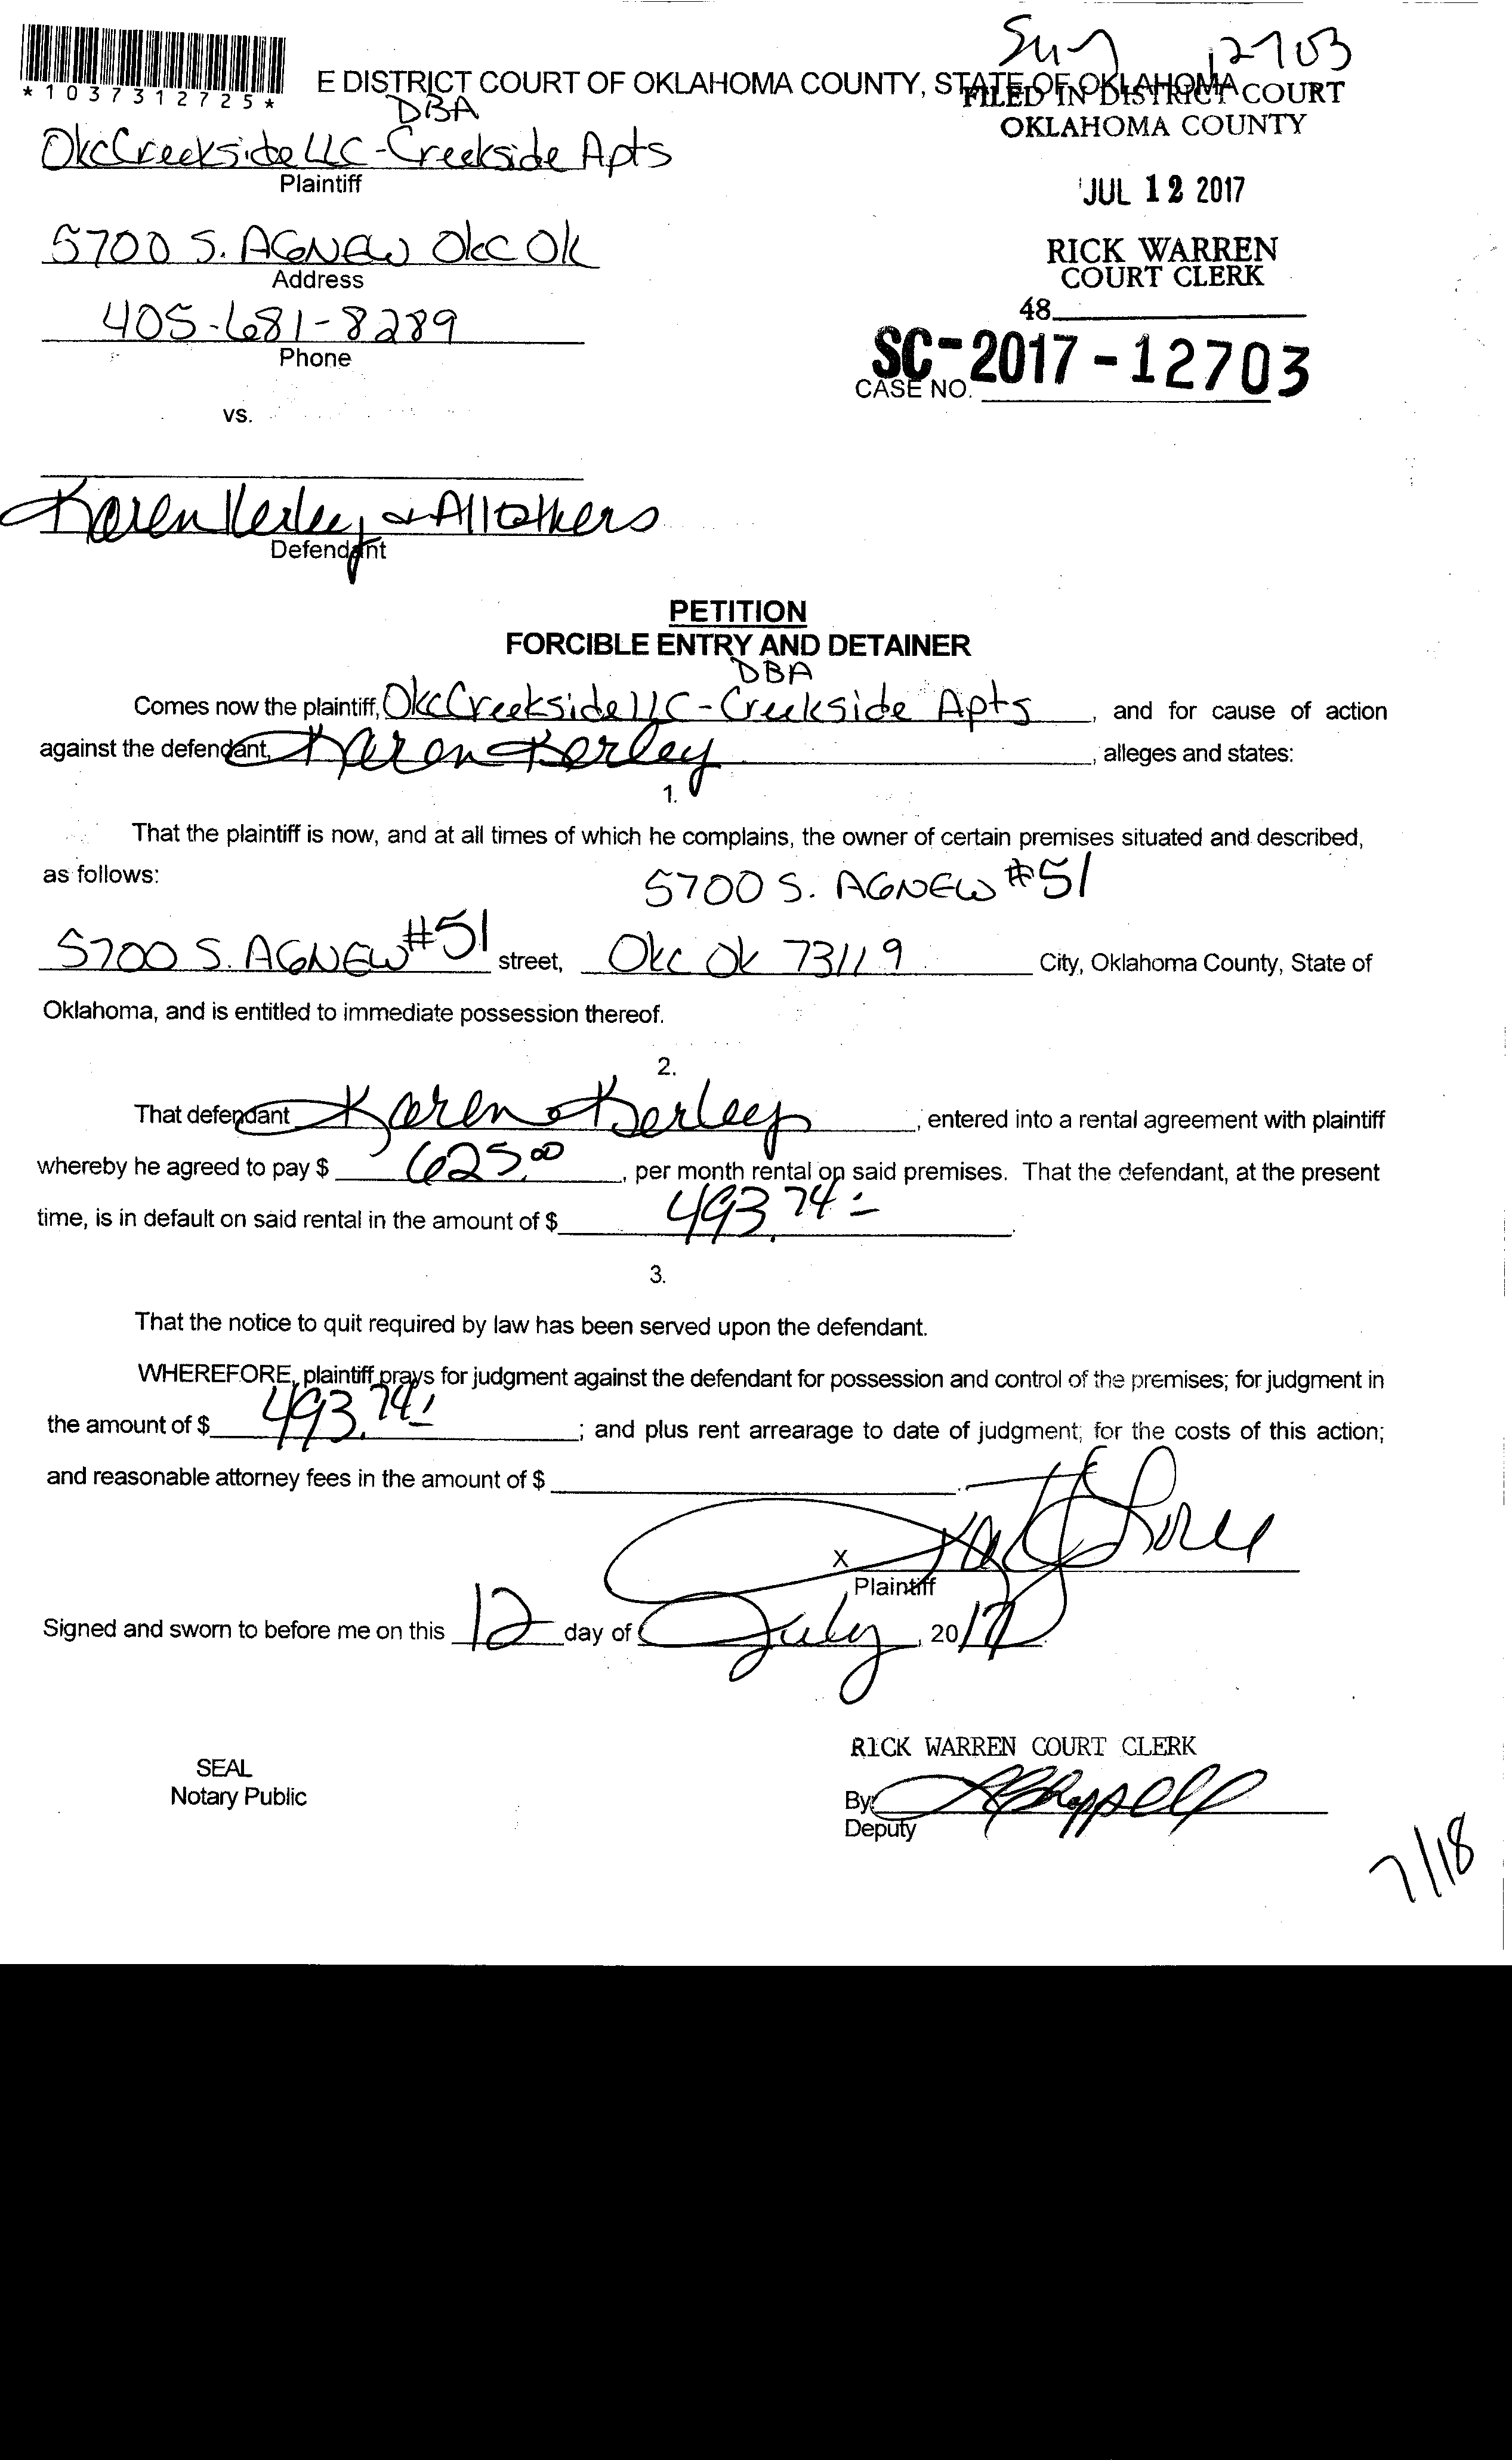 Sm 12703
*1037312725*
E DISTRICT COURT OF OKLAHOMA COUNTY, STATE OF OKLAHOMA
FILED IN DISTRICT COURT
OKLAHOMA COUNTY
DBA
OkcCreekside LLC - Creekside Apts
Plaintiff
JUL 12 2017
5700 S. AGNEW Okc Ok
Address
RICK WARREN
COURT CLERK
405-681-8289
Phone
48
SC-2017-12703
CASE NO.
vs.
Karen Kerley & All others
Defendant
PETITION
FORCIBLE ENTRY AND DETAINER
DBA
Comes now the plaintiff, OkcCreekside LLC - Creekside Apts, and for cause of action
against the defendant, Karen Kerley, alleges and states:
1.
That the plaintiff is now, and at all times of which he complains, the owner of certain premises situated and described,
as follows:
5700 S. AGNEW #51
5700 S. AGNEW #51 street, Okc Ok 73119 City, Oklahoma County, State of
Oklahoma, and is entitled to immediate possession thereof.
2.
That defendant Karen Kerley, entered into a rental agreement with plaintiff
whereby he agreed to pay $ 625.00, per month rental on said premises. That the defendant, at the present
time, is in default on said rental in the amount of $ 493.74.
3.
That the notice to quit required by law has been served upon the defendant.
WHEREFORE, plaintiff prays for judgment against the defendant for possession and control of the premises; for judgment in
the amount of $ 493.74; and plus rent arrearage to date of judgment; for the costs of this action;
and reasonable attorney fees in the amount of $
X
Plaintiff
Signed and sworn to before me on this 12 day of July, 2017.
RICK WARREN COURT CLERK
SEAL
Notary Public
By:
Deputy
7/18